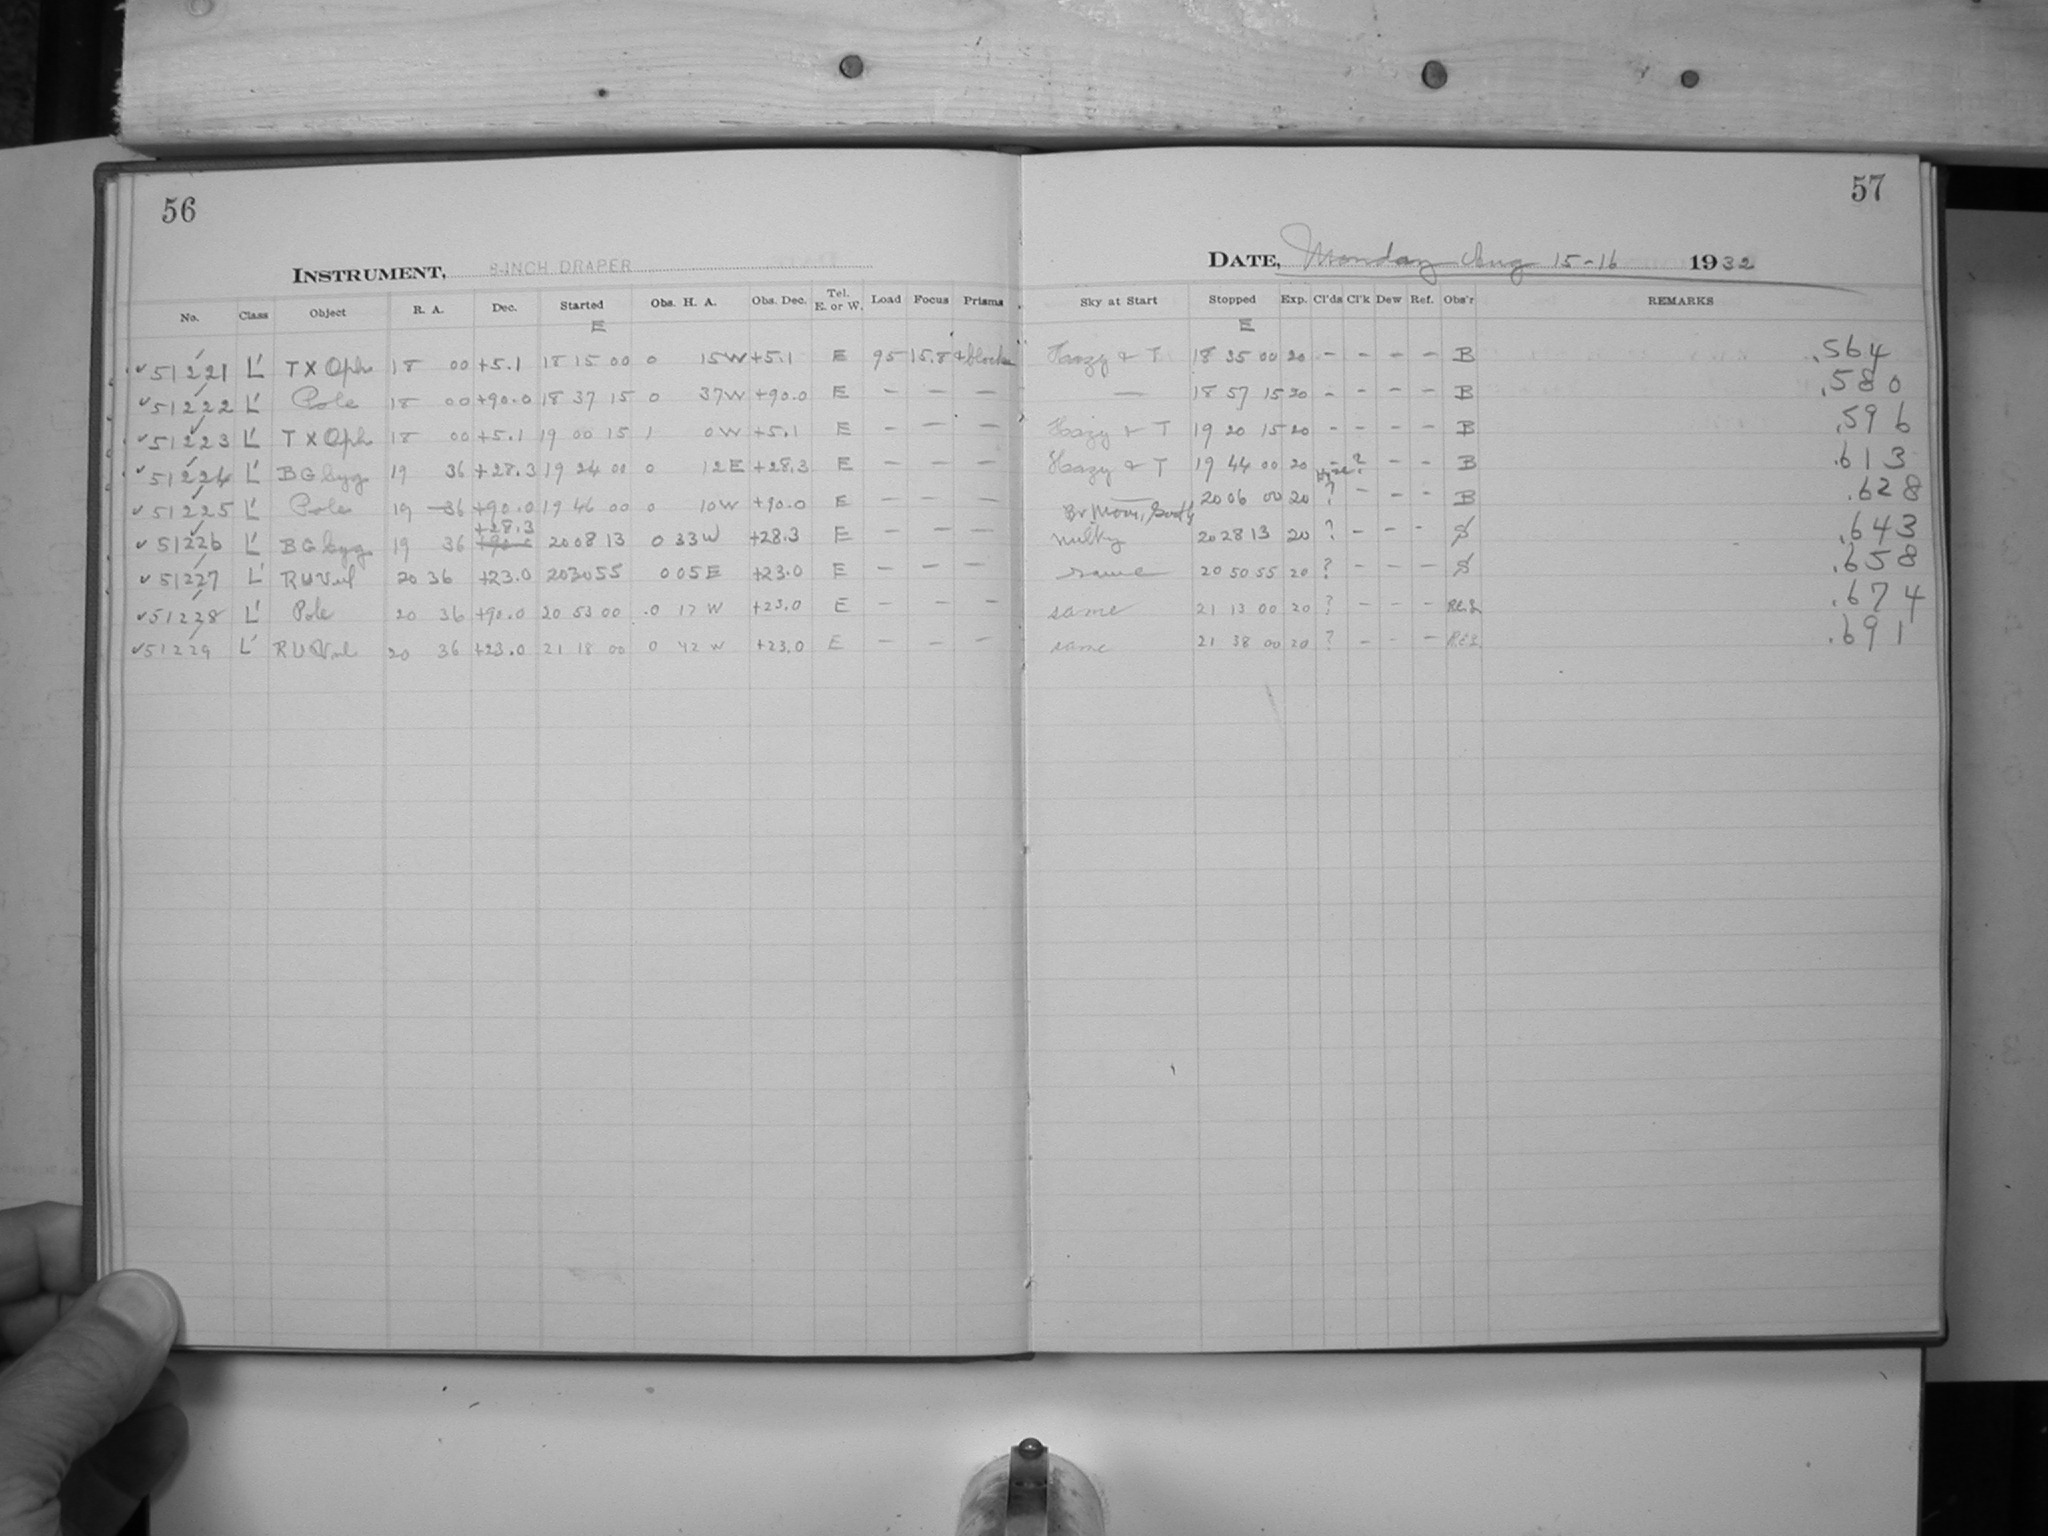 56
INSTRUMENT, 8-INCH DRAPER
No. Class Object R. A. Dec. Started Obs. H. A. Obs. Dec. Tel. E. or W. Load Focus Prisms
E
✓51221 L' TX Oph 18 00 +5.1 18 15 00 0 15W +5.1 E 95 15.8
✓51222 L' Pole 18 00 +90.0 18 37 15 0 37W +90.0 E — — —
✓51223 L' TX Oph 18 00 +5.1 19 00 15 1 0W +5.1 E — — —
✓51224 L' BG Cyg 19 36 +28.3 19 24 00 0 12E +28.3 E — — —
✓51225 L' Pole 19 36 +90.0 19 46 00 0 10W +90.0 E — — —
✓51226 L' BG Cyg 19 36 +28.3 20 08 13 0 33W +28.3 E — — —
✓51227 L' RU Vul 20 36 +23.0 20 30 55 0 05E +23.0 E — — —
✓51228 L' Pole 20 36 +90.0 20 53 00 0 17W +23.0 E — — —
✓51229 L' RU Vul 20 36 +23.0 21 18 00 0 42W +23.0 E — — —
57
DATE, Monday Aug 15-16 1932
Sky at Start Stopped Exp. Cl'ds Cl'k Dew Ref. Obs'r REMARKS
E
Hazy & T 18 35 00 20 – – – – B .564
— 18 57 15 20 – – – – B .580
Hazy & T 19 20 15 20 – – – – B .596
Hazy & T 19 44 00 20 – ? – – B .613
— 20 06 00 20 Haze? – – – B .628
Br Moon, South
milky 20 28 13 20 ? – – – S .643
same 20 50 55 20 ? – – – S .658
same 21 13 00 20 ? – – – .674
same 21 38 00 20 ? – – – .691